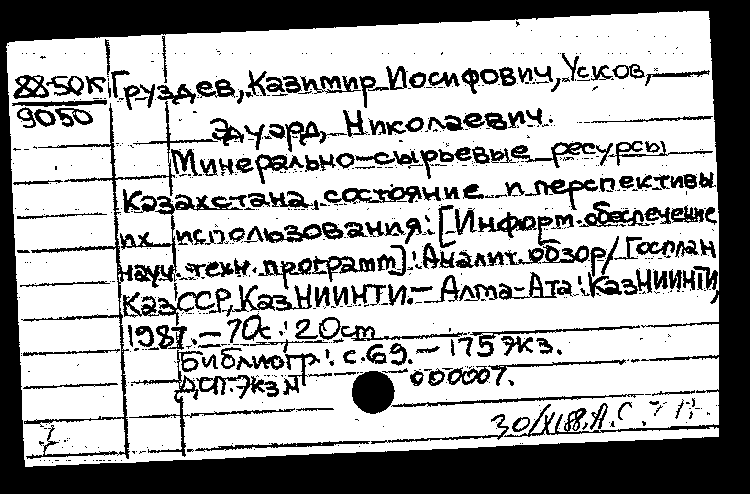 88-50К Груздев, Казимир Иосифович, Усков,
9050 Эдуард, Николаевич.
Минерально-сырьевые ресурсы
Казахстана, состояние и перспективы
их использования: [Информ. обеспечение
науч. техн. программ]: Аналит. обзор/ Госплан
КазССР, КазНИИНТИ. — Алма-Ата: КазНИИНТИ,
1987. — 70с.; 20см
Библиогр: с.69. — 175 экз.
ДСП. Экз N 000007.
30/XI88. А.С.